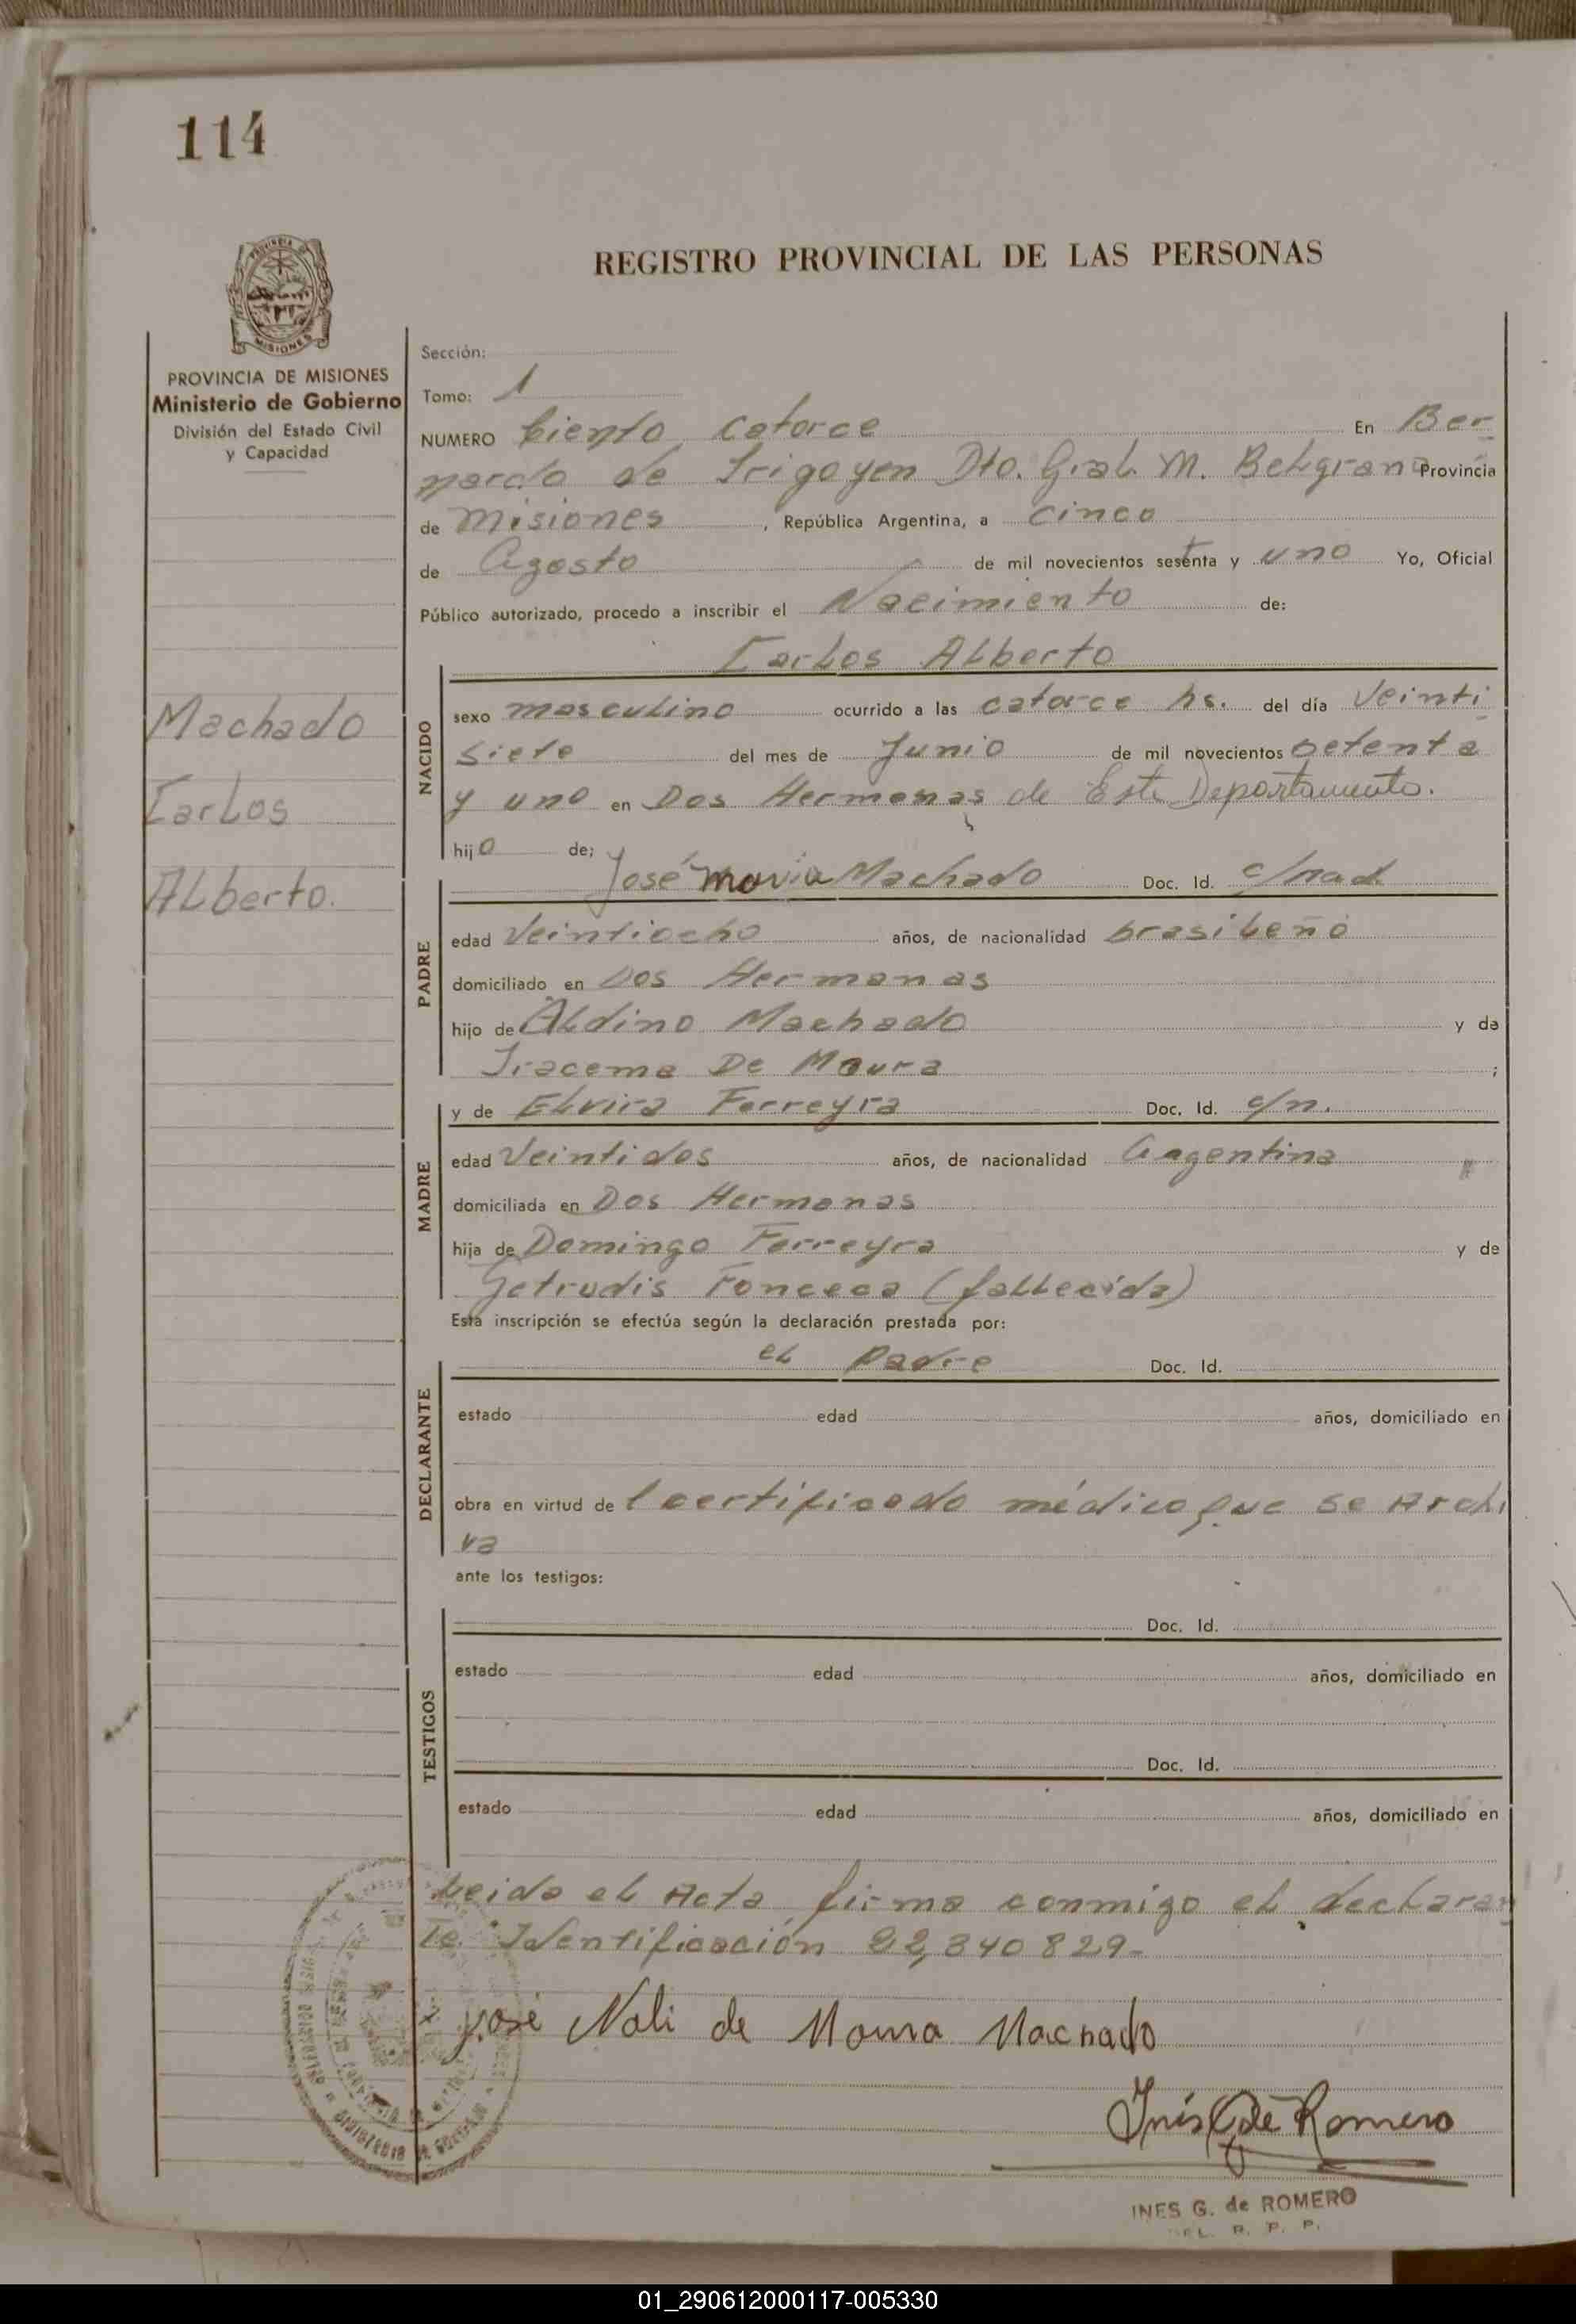 114
REGISTRO PROVINCIAL DE LAS PERSONAS
PROVINCIA DE MISIONES
Ministerio de Gobierno
División del Estado Civil
y Capacidad
Machado
Carlos
Alberto.
Sección:
Tomo: 1
NUMERO Ciento catorce En Ber
nardo de Irigoyen Dto. Gral. M. Belgrano Provincia
de Misiones, República Argentina, a cinco
de Agosto de mil novecientos setenta y uno Yo, Oficial
Público autorizado, procedo a inscribir el Nacimiento de:
Carlos Alberto
NACIDO
sexo masculino ocurrido a las catorce hs. del día Veinti
siete del mes de Junio de mil novecientos setenta
y uno en Dos Hermanas de Este Departamento.
hijo de;
José maria Machado Doc. Id. c/nad
PADRE
edad Veintiocho años, de nacionalidad brasileño
domiciliado en Dos Hermanas
hijo de Aldino Machado y de
Iracema De Moura ;
y de Elvira Ferreyra Doc. Id. c/n.
MADRE
edad Veintidos años, de nacionalidad Argentina
domiciliada en Dos Hermanas
hija de Domingo Ferreyra y de
Getrudis Fonceca (fallecida)
Esta inscripción se efectúa según la declaración prestada por:
el padre Doc. Id.
DECLARANTE
estado edad años, domiciliado en
obra en virtud de l certificado médico que se Archi
va
ante los testigos:
Doc. Id.
TESTIGOS
estado edad años, domiciliado en
Doc. Id.
estado edad años, domiciliado en
Leida el Acta firma conmigo el declaran
te Identificación 22,340829-
José Noli de Moura Machado
Inés G de Romero
INES G. de ROMERO
DEL. R. P. P.
01_290612000117-005330